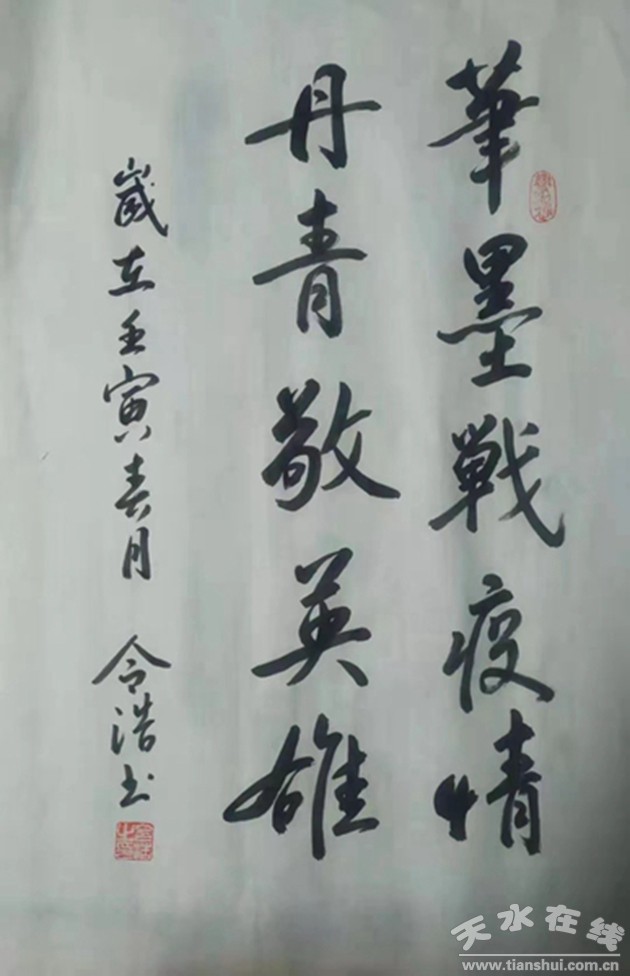 筆墨戰疫情
丹青敬英雄
歲在壬寅春月
令浩书
天水在线
www.tianshui.com.cn